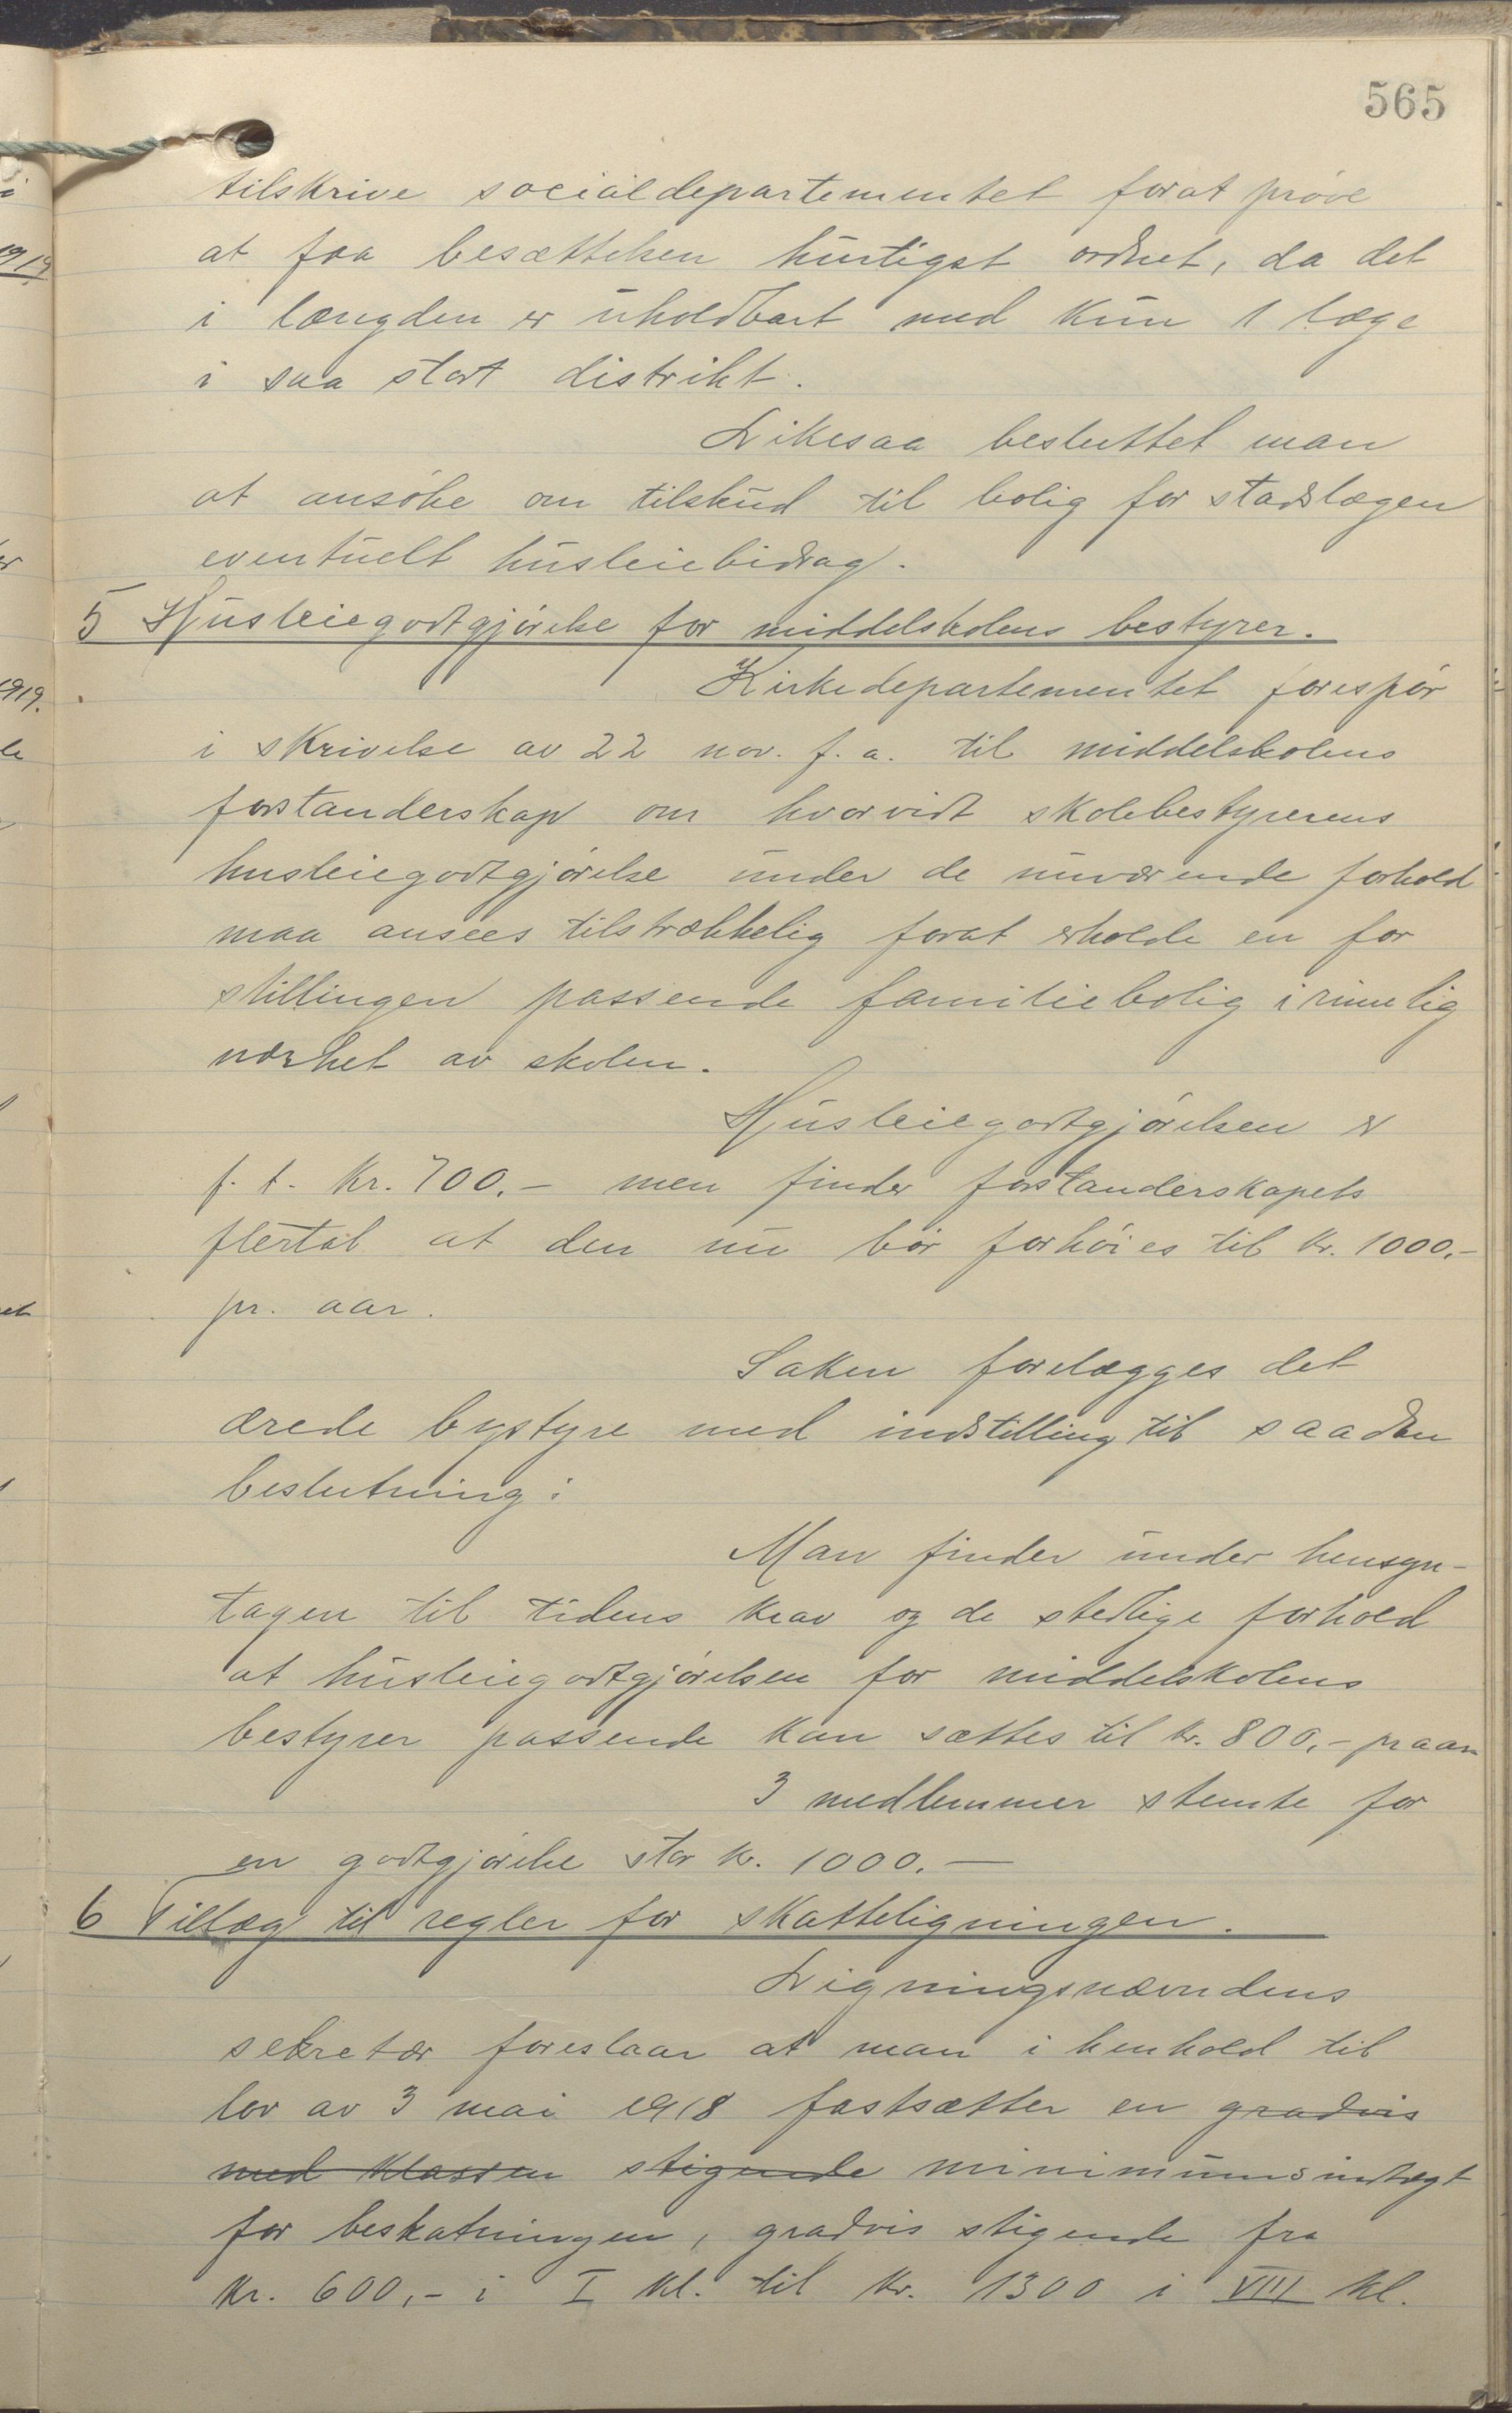 565
tilskrive socialdepartementet forat prøve
at faa besættelsen hurtigst ordnet, da det
i længden er uholdbart med kun 1 læge
i saa stort distrikt.
Likesaa besluttet man
at ansøke om tilskud til bolig for stadslægen
eventuelt husleiebidrag.
5 Husleiegodtgjørelse for middelskolens bestyrer.
Kirkedepartementet forespør
i skrivelse av 22 nov. f. a. til middelskolens
forstanderskap om hvorvidt skolebestyrerens
husleiegodtgjørelse under de nuværende forhold
maa ansees tilstrækkelig forat erholde en for
stillingen passende familiebolig i rimelig
nærhet av skolen.
Husleiegodtgjørelsen er
f. t. kr. 700.- men finder forstanderskapets
flertal at den nu bør forhøies til kr. 1000.-
pr. aar.
Saken forelægges det
ærede bystyre med indstilling til saadan
beslutning:
Man finder under hensyn-
tagen til tidens krav og de stedlige forhold
at husleiegodtgjørelsen for middelskolens
bestyrer passende kan sættes til kr. 800,- pr aar
3 medlemmer stemte for
en godtgjørelse stor kr. 1000.-
6 Tillæg til regler for skatteligningen.
Ligningsnævndens
sekretær foreslaar at man i henhold til
lov av 3 mai 1918 fastsætter en gradvis
med klassen stigende minimumsindtægt
for beskatningen, gradvis stigende fra
kr. 600,- i I kl. til kr. 1300 i VIII kl.